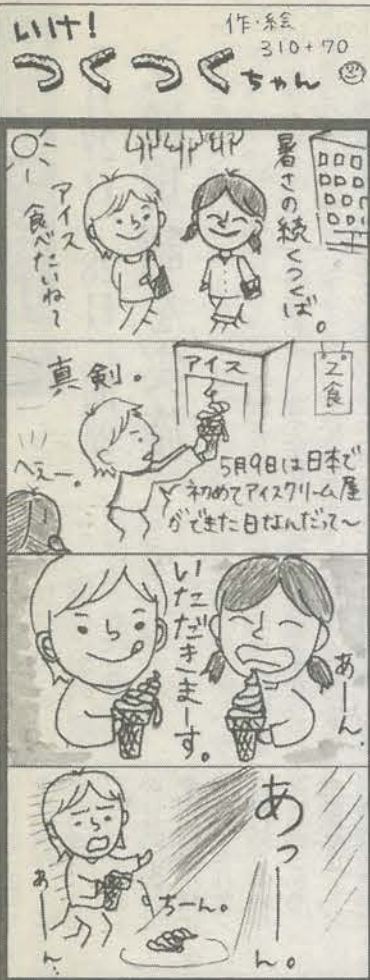 いけ!
つくつくちゃん
作・絵
310+70
暑さの続くつくば。
アイス
食べたいね〜
真剣。
アイス
2食
へぇー。
5月9日は日本で
初めてアイスクリーム屋
ができた日なんだって〜
いただきまーす。
あーん。
あっーーん。
ちーん。
あーーん。